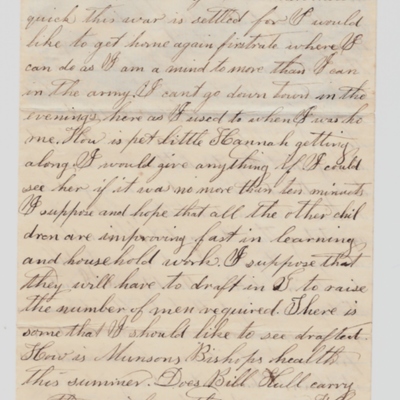 quick this war is settled for I would
like to get home again firstrate where I
can do as I am a mind to more than I can
in the army. I cant go down town in the
evenings, here as I used to when I was ho
me. How is pet little Hannah getting
along I would give anything if I could
see her if it was no more than ten minuets
I suppose and hope that all the other chil
dren are improving fast in learning
and household work. I suppose that
they will have to draft in to raise
the number of men required. There is
some that I should like to see drafted.
How is Munsons Bishops health
this summer. Does Bill Hull carry